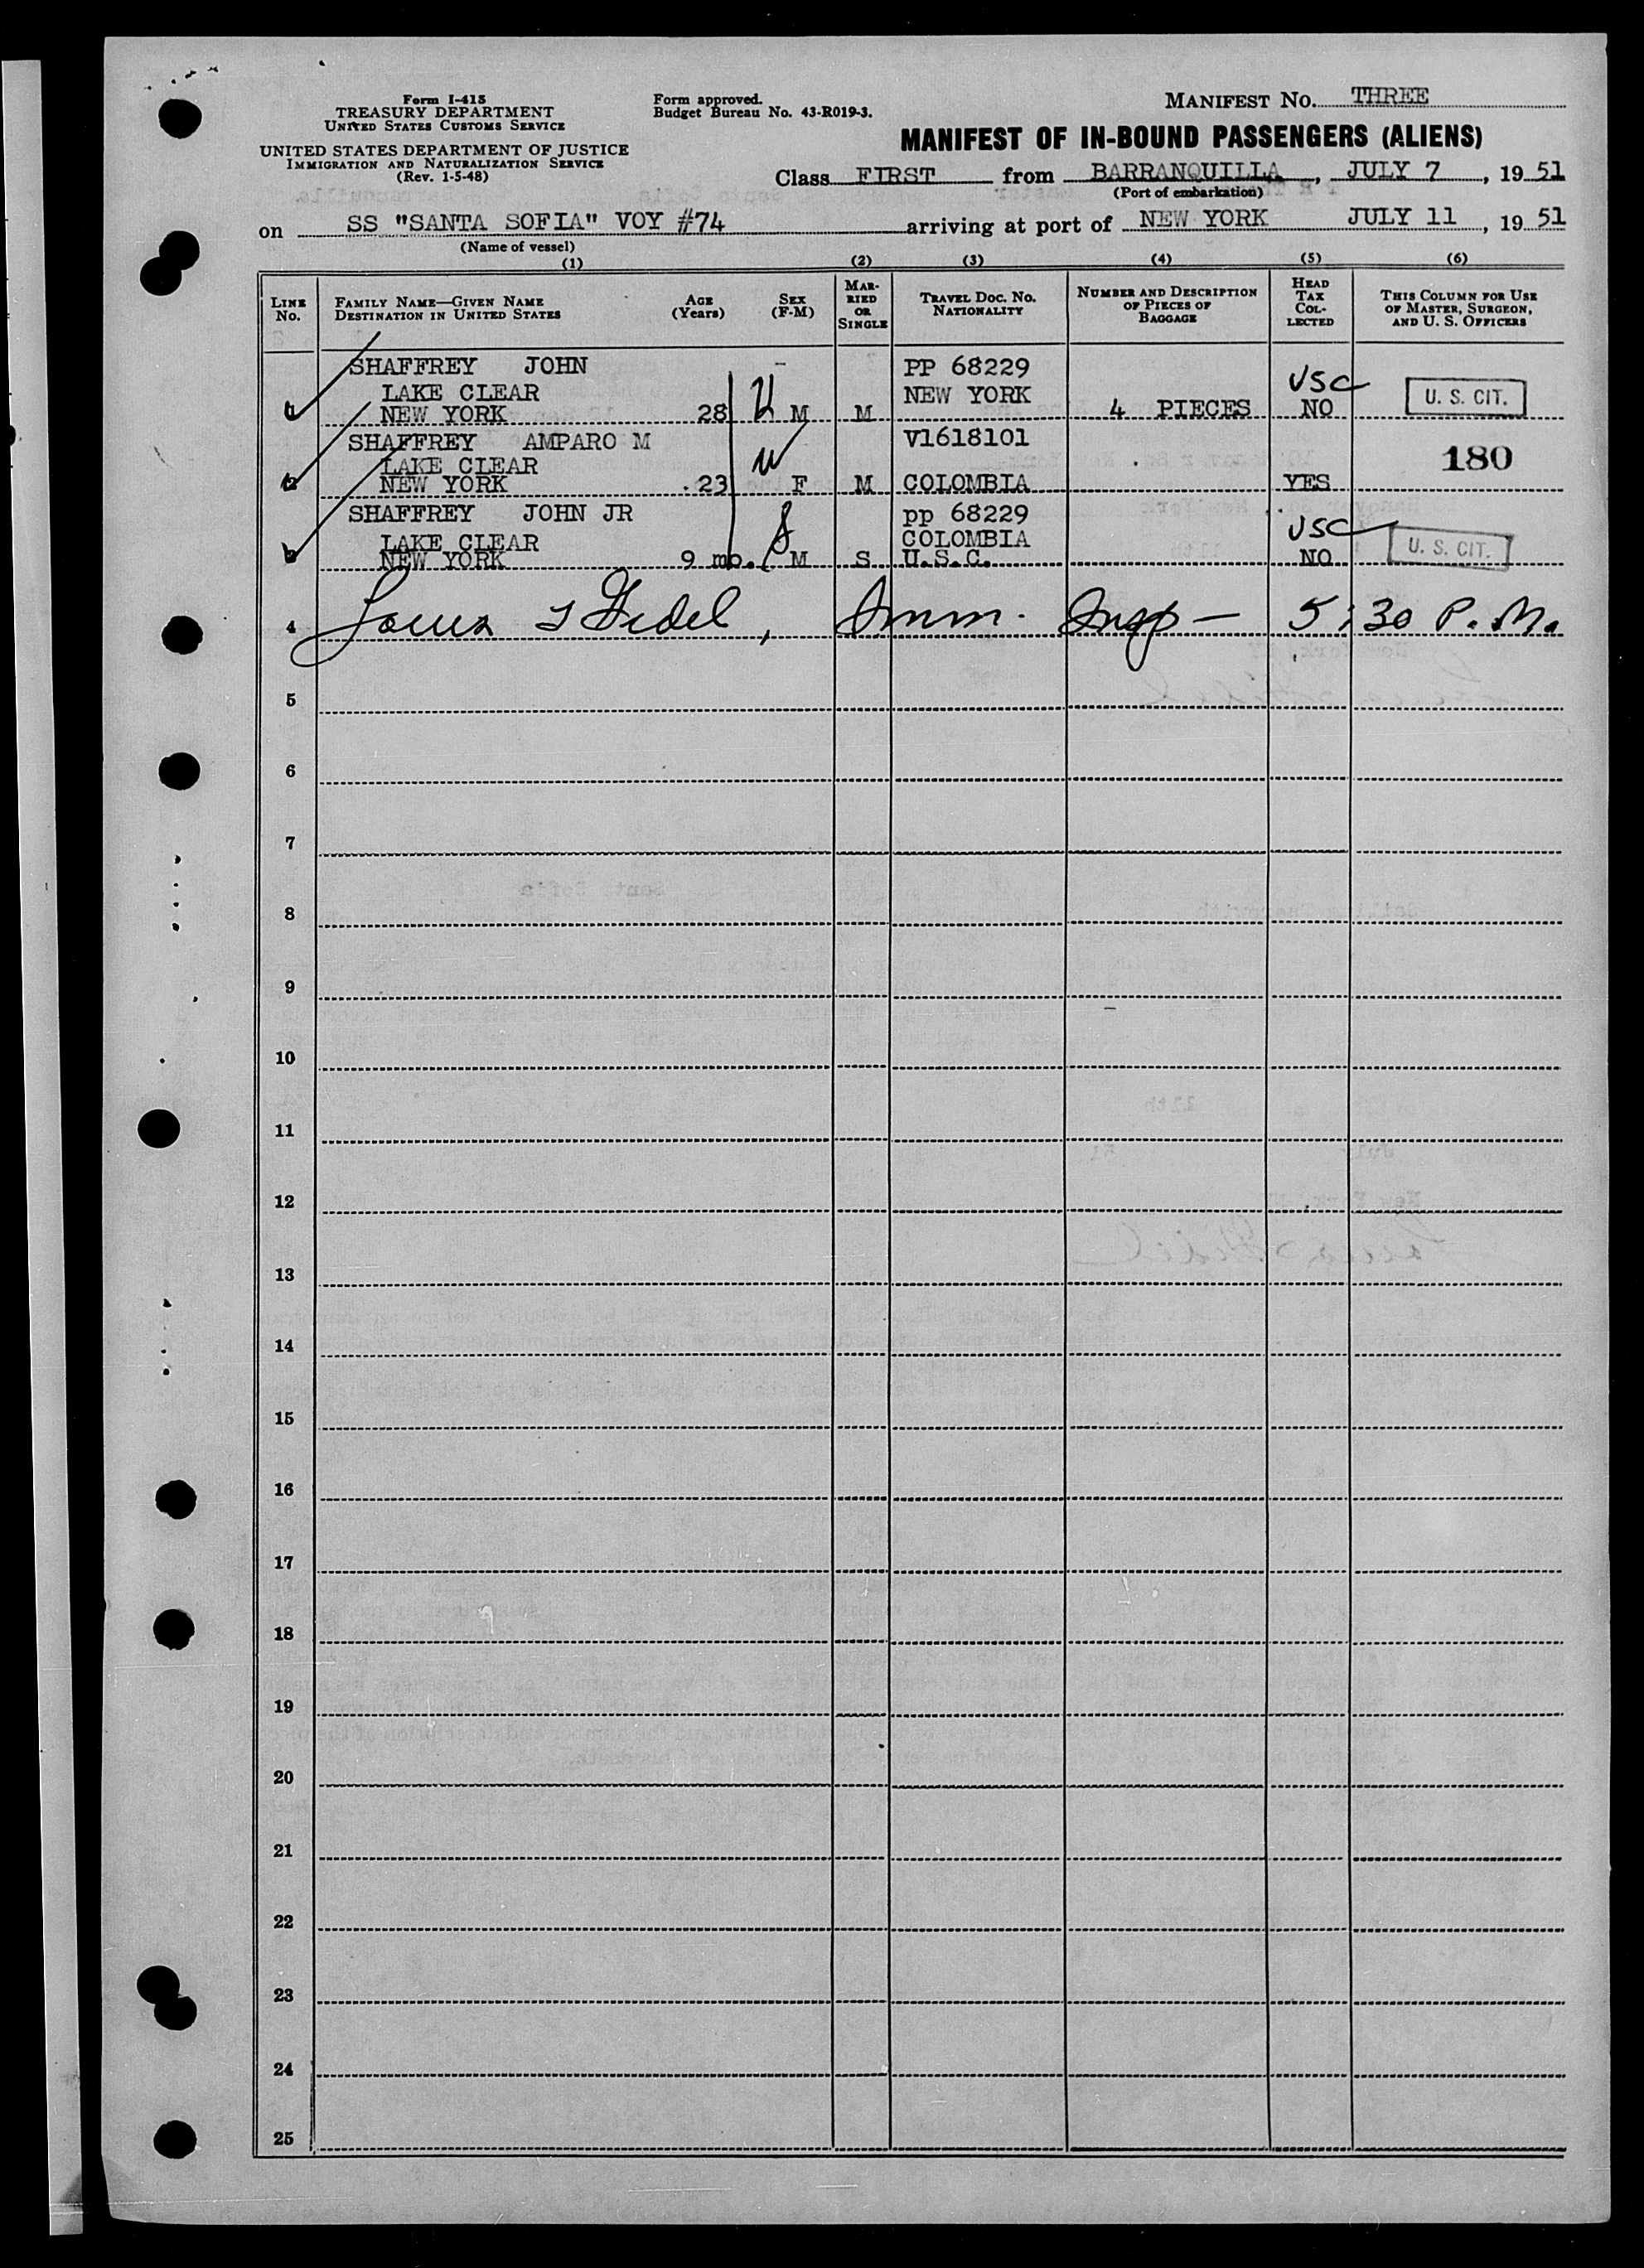 Form I-415
TREASURY DEPARTMENT
UNITED STATES CUSTOMS SERVICE
UNITED STATES DEPARTMENT OF JUSTICE
IMMIGRATION AND NATURALIZATION SERVICE
(Rev. 1-5-48)
Form approved.
Budget Bureau No. 43-R019-3.
MANIFEST NO. THREE
MANIFEST OF IN-BOUND PASSENGERS (ALIENS)
Class FIRST from BARRANQUILLA, JULY 7, 1951
(Port of embarkation)
on SS "SANTA SOFIA" VOY #74 arriving at port of NEW YORK JULY 11, 1951
(Name of vessel)
(1) (2) (3) (4) (5) (6)
LINE NO.
FAMILY NAME—GIVEN NAME
DESTINATION IN UNITED STATES
AGE (Years)
SEX (F-M)
MARRIED OR SINGLE
TRAVEL DOC. NO.
NATIONALITY
NUMBER AND DESCRIPTION OF PIECES OF BAGGAGE
HEAD TAX COLLECTED
THIS COLUMN FOR USE OF MASTER, SURGEON, AND U. S. OFFICERS
SHAFFREY JOHN PP 68229
LAKE CLEAR NEW YORK USC U. S. CIT.
1 NEW YORK 28 M M 4 PIECES NO
SHAFFREY AMPARO M V1618101
LAKE CLEAR 180
2 NEW YORK 23 F M COLOMBIA YES
SHAFFREY JOHN JR pp 68229
LAKE CLEAR COLOMBIA USC U. S. CIT.
3 NEW YORK 9 mo. M S U.S.C. NO
4 Imm. Insp — 5:30 P.M.
5
6
7
8
9
10
11
12
13
14
15
16
17
18
19
20
21
22
23
24
25